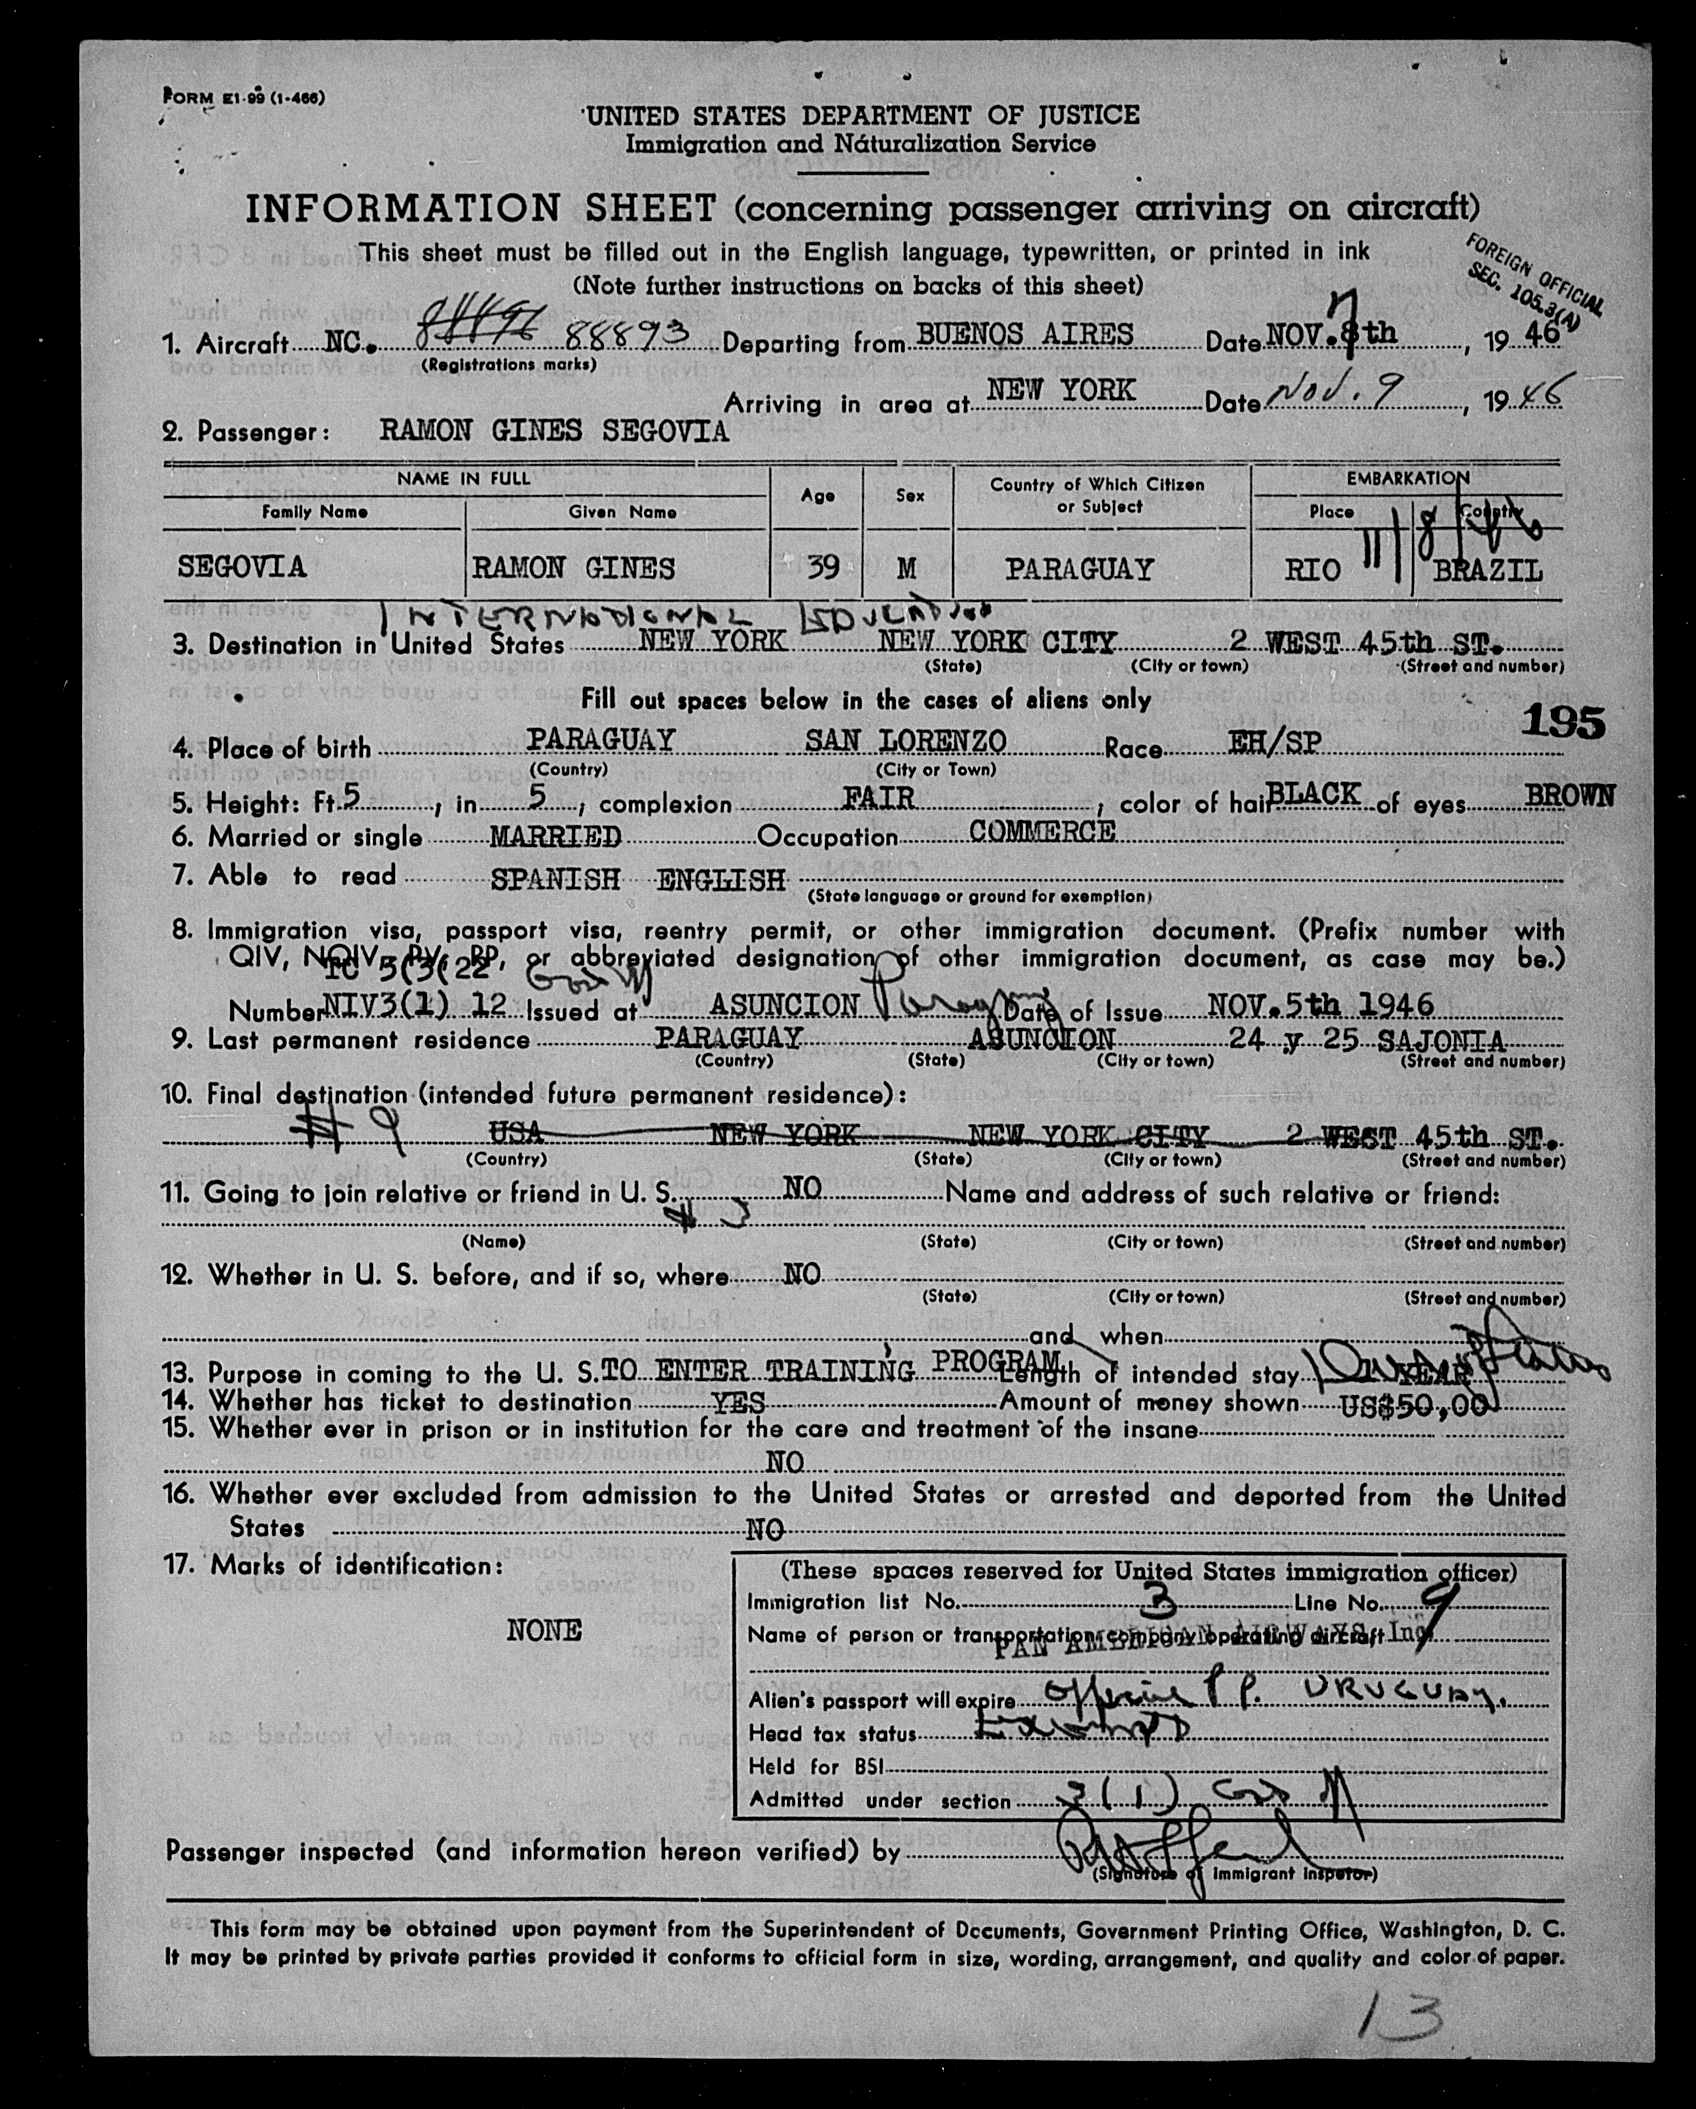 FORM E1-99 (1-466)
UNITED STATES DEPARTMENT OF JUSTICE
Immigration and Naturalization Service
INFORMATION SHEET (concerning passenger arriving on aircraft)
This sheet must be filled out in the English language, typewritten, or printed in ink
(Note further instructions on backs of this sheet)
FOREIGN OFFICIAL
SEC. 105.3(A)
1. Aircraft NC. 88893 Departing from BUENOS AIRES Date NOV. 7th, 19 46
(Registrations marks)
Arriving in area at NEW YORK Date Nov. 9, 19 46
2. Passenger: RAMON GINES SEGOVIA
NAME IN FULL Age Sex Country of Which Citizen or Subject EMBARKATION
Family Name Given Name Place Country
11/8/46
SEGOVIA RAMON GINES 39 M PARAGUAY RIO BRAZIL
INTERNATIONAL EDUCATION
3. Destination in United States NEW YORK NEW YORK CITY 2 WEST 45th ST.
(State) (City or town) (Street and number)
Fill out spaces below in the cases of aliens only
195
4. Place of birth PARAGUAY SAN LORENZO Race EH/SP
(Country) (City or Town)
5. Height: Ft. 5, in. 5, complexion FAIR; color of hair BLACK of eyes BROWN
6. Married or single MARRIED Occupation COMMERCE
7. Able to read SPANISH ENGLISH
(State language or ground for exemption)
8. Immigration visa, passport visa, reentry permit, or other immigration document. (Prefix number with
QIV, NQIV, PV, RP, or abbreviated designation of other immigration document, as case may be.)
TC 5(3(22 Gov M
Number NIV3(1) 12 Issued at ASUNCION Paraguay Date of Issue NOV.5th 1946
9. Last permanent residence PARAGUAY ASUNCION 24 y 25 SAJONIA
(Country) (State) (City or town) (Street and number)
10. Final destination (intended future permanent residence):
# 9 USA NEW YORK NEW YORK CITY 2 WEST 45th ST.
(Country) (State) (City or town) (Street and number)
11. Going to join relative or friend in U. S. NO Name and address of such relative or friend:
# 3
(Name) (State) (City or town) (Street and number)
12. Whether in U. S. before, and if so, where NO
(State) (City or town) (Street and number)
and when
13. Purpose in coming to the U. S. TO ENTER TRAINING PROGRAM Length of intended stay 1 YEAR
14. Whether has ticket to destination YES Amount of money shown US$50,00
15. Whether ever in prison or in institution for the care and treatment of the insane
NO
16. Whether ever excluded from admission to the United States or arrested and deported from the United
States NO
17. Marks of identification:
NONE
(These spaces reserved for United States immigration officer)
Immigration list No. 3 Line No. 9
Name of person or transportation company operating aircraft
PAN AMERICAN AIRWAYS, Inc.
Alien's passport will expire Official PP. URUGUAY.
Head tax status Exempt
Held for BSI
Admitted under section 3(1) Gov M
Passenger inspected (and information hereon verified) by
(Signature of Immigrant Inspetor)
This form may be obtained upon payment from the Superintendent of Documents, Government Printing Office, Washington, D. C.
It may be printed by private parties provided it conforms to official form in size, wording, arrangement, and quality and color of paper.
13